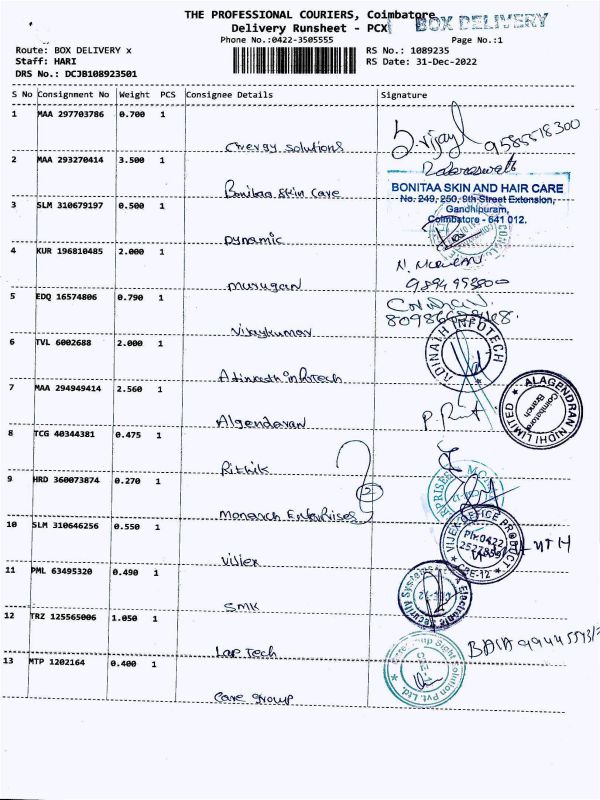 THE PROFESSIONAL COURIERS, Coimbatore
Delivery Runsheet - PCX
BOX DELIVERY
Phone No.:0422-3505555
Page No.:1
Route: BOX DELIVERY x
RS No.: 1089235
Staff: HARI
RS Date: 31-Dec-2022
DRS No.: DCJB108923501
S No Consignment No Weight PCS Consignee Details Signature
1 MAA 297703786 0.700 1
Energy Solutions
9585518300
2 MAA 293270414 3.500 1
Bonitaa Skin Care
BONITAA SKIN AND HAIR CARE
No. 249, 250, 9th Street Extension,
Gandhipuram,
Coimbatore - 641 012.
3 SLM 310679197 0.500 1
Dynamic
4 KUR 196810485 2.000 1
Murugan
5 EDQ 16574806 0.790 1
Vijaykumar
6 TVL 6002688 2.000 1
Adinaath infotech
ADINATH INFOTECH
7 MAA 294949414 2.560 1
Algendaran
ALAGENDRAN NIDHI LIMITED
Coimbatore
Branch
8 TCG 40344381 0.475 1
Rithik
9 HRD 360073874 0.270 1
Monarch Enterprises
2
10 SLM 310646256 0.550 1
Vijex
VIJEX OFFICE PRODUCT
Ph:0422
CBE-12
11 PML 63495320 0.490 1
SMK
Electronic Security Systems
12 TRZ 125565006 1.050 1
Lap Tech
13 MTP 1202164 0.400 1
Care Group